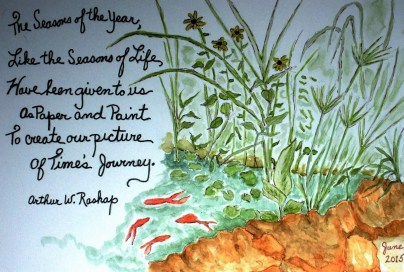 The Seasons of the Year,
Like the Seasons of Life,
Have been given to us
as Paper and Paint
To create our picture
Of Time's Journey.
Arthur W. Raskap
June
2015